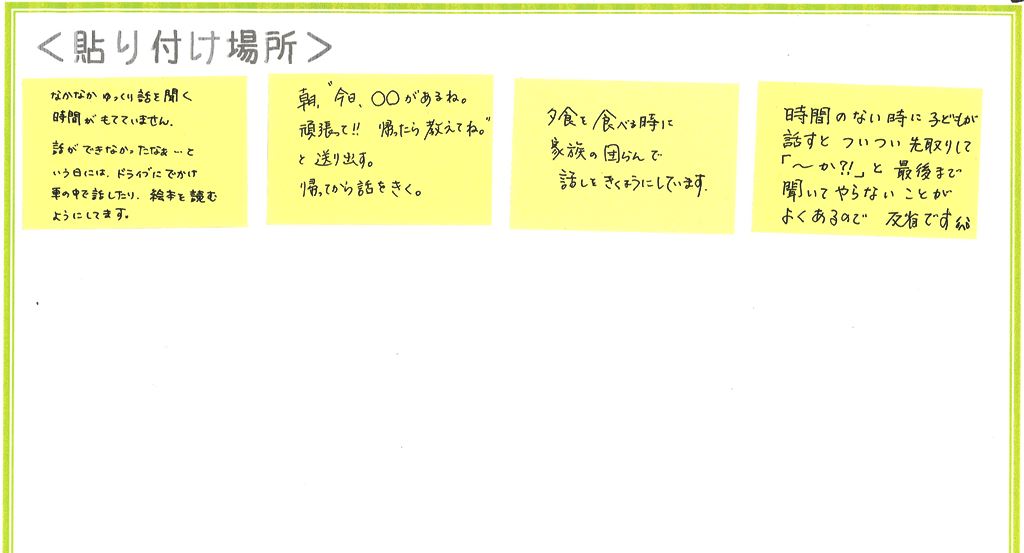 <貼り付け場所>
なかなか ゆっくり 話を聞く
時間が もてていません。
話が できなかったなぁ…と
いう日には、ドライブに でかけ
車の中で話したり、絵本を読む
ようにしてます。
朝、"今日、○○があるね。
頑張って!! 帰ったら 教えてね。"
と 送り出す。
帰ってから話をきく。
夕食を 食べる時に
家族の団らんで
話しを きくようにしています。
時間のない時に 子どもが
話すと ついつい 先取りして
「〜か?!」と 最後まで
聞いてやらない ことが
よくあるので 反省です